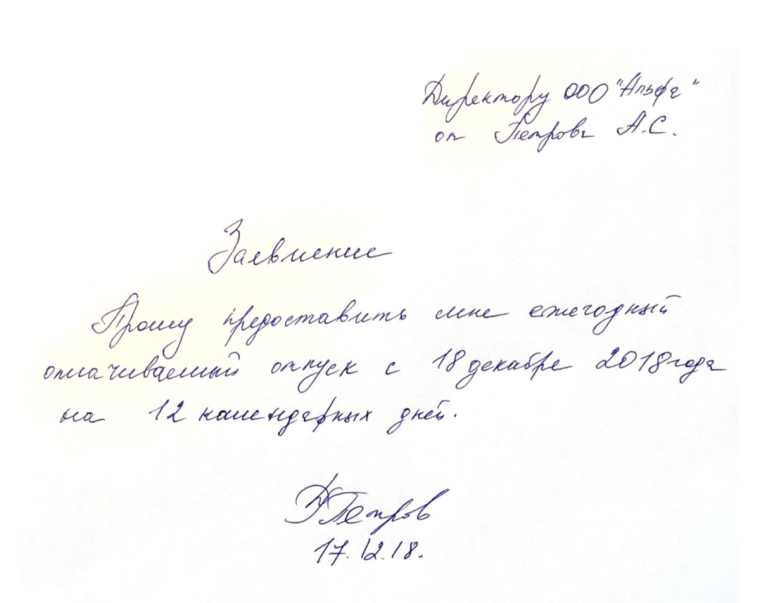 Директору ООО "Альфа"
от Петрова А.С.
Заявление
Прошу предоставить мне ежегодный
оплачиваемый отпуск с 18 декабря 2018 года
на 12 календарных дней.
Петров
17.12.18.